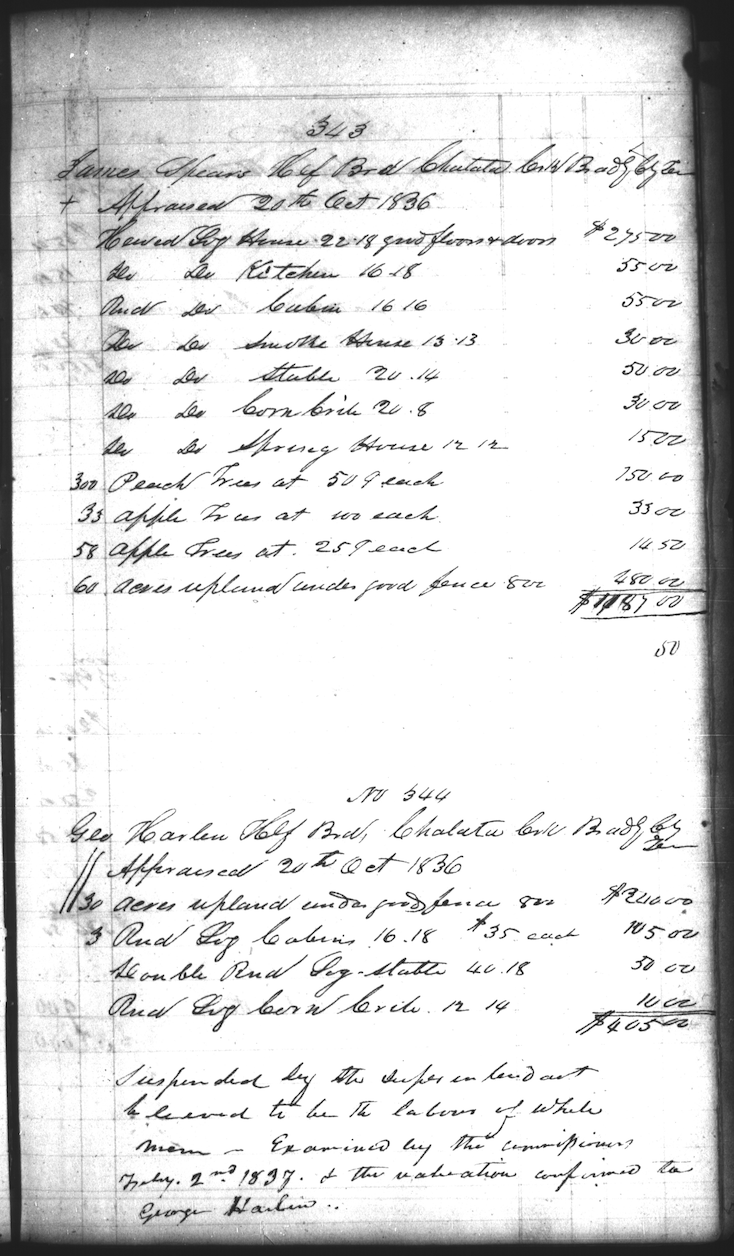 343
James Spears Hlf Brd Chalata Crk Bradly Cty Ten
+ Appraised 20th Oct 1836
Hewed Log House 22.18 good floors & doors $275 00
Do Do Kitchen 16.18 55 00
Rnd Do Cabin 16 16 55 00
Do Do Smoke House 13.13 30 00
Do Do Stable 20.14 50.00
Do Do Corn Crib 20.8 30 00
Do Do Spring House 12 12 15 00
300 Peach Trees at 50 ₵ each 150.00
33 apple Trees at 100 each 33 00
58 apple Trees at 25 ₵ each 14 50
60 acres upland under good fence 800 480.00
$1187 00
50
No 344
Geo Harlin Hlf Brd, Chalata Crk Bradly Cty
Ten
Appraised 20th Oct 1836
30 acres upland under good fence 800 $240 00
3 Rnd Log Cabins 16.18 $35 each 105 00
Double Rnd Log Stable 40.18 50 00
Rnd Log Corn Crib 12 14 10 00
$405 00
Suspended by the superintendant
believed to be the labour of white
men – Examined by the commissioners
Feby. 2nd 1837. & the valuation confirmed to
George Harlin..